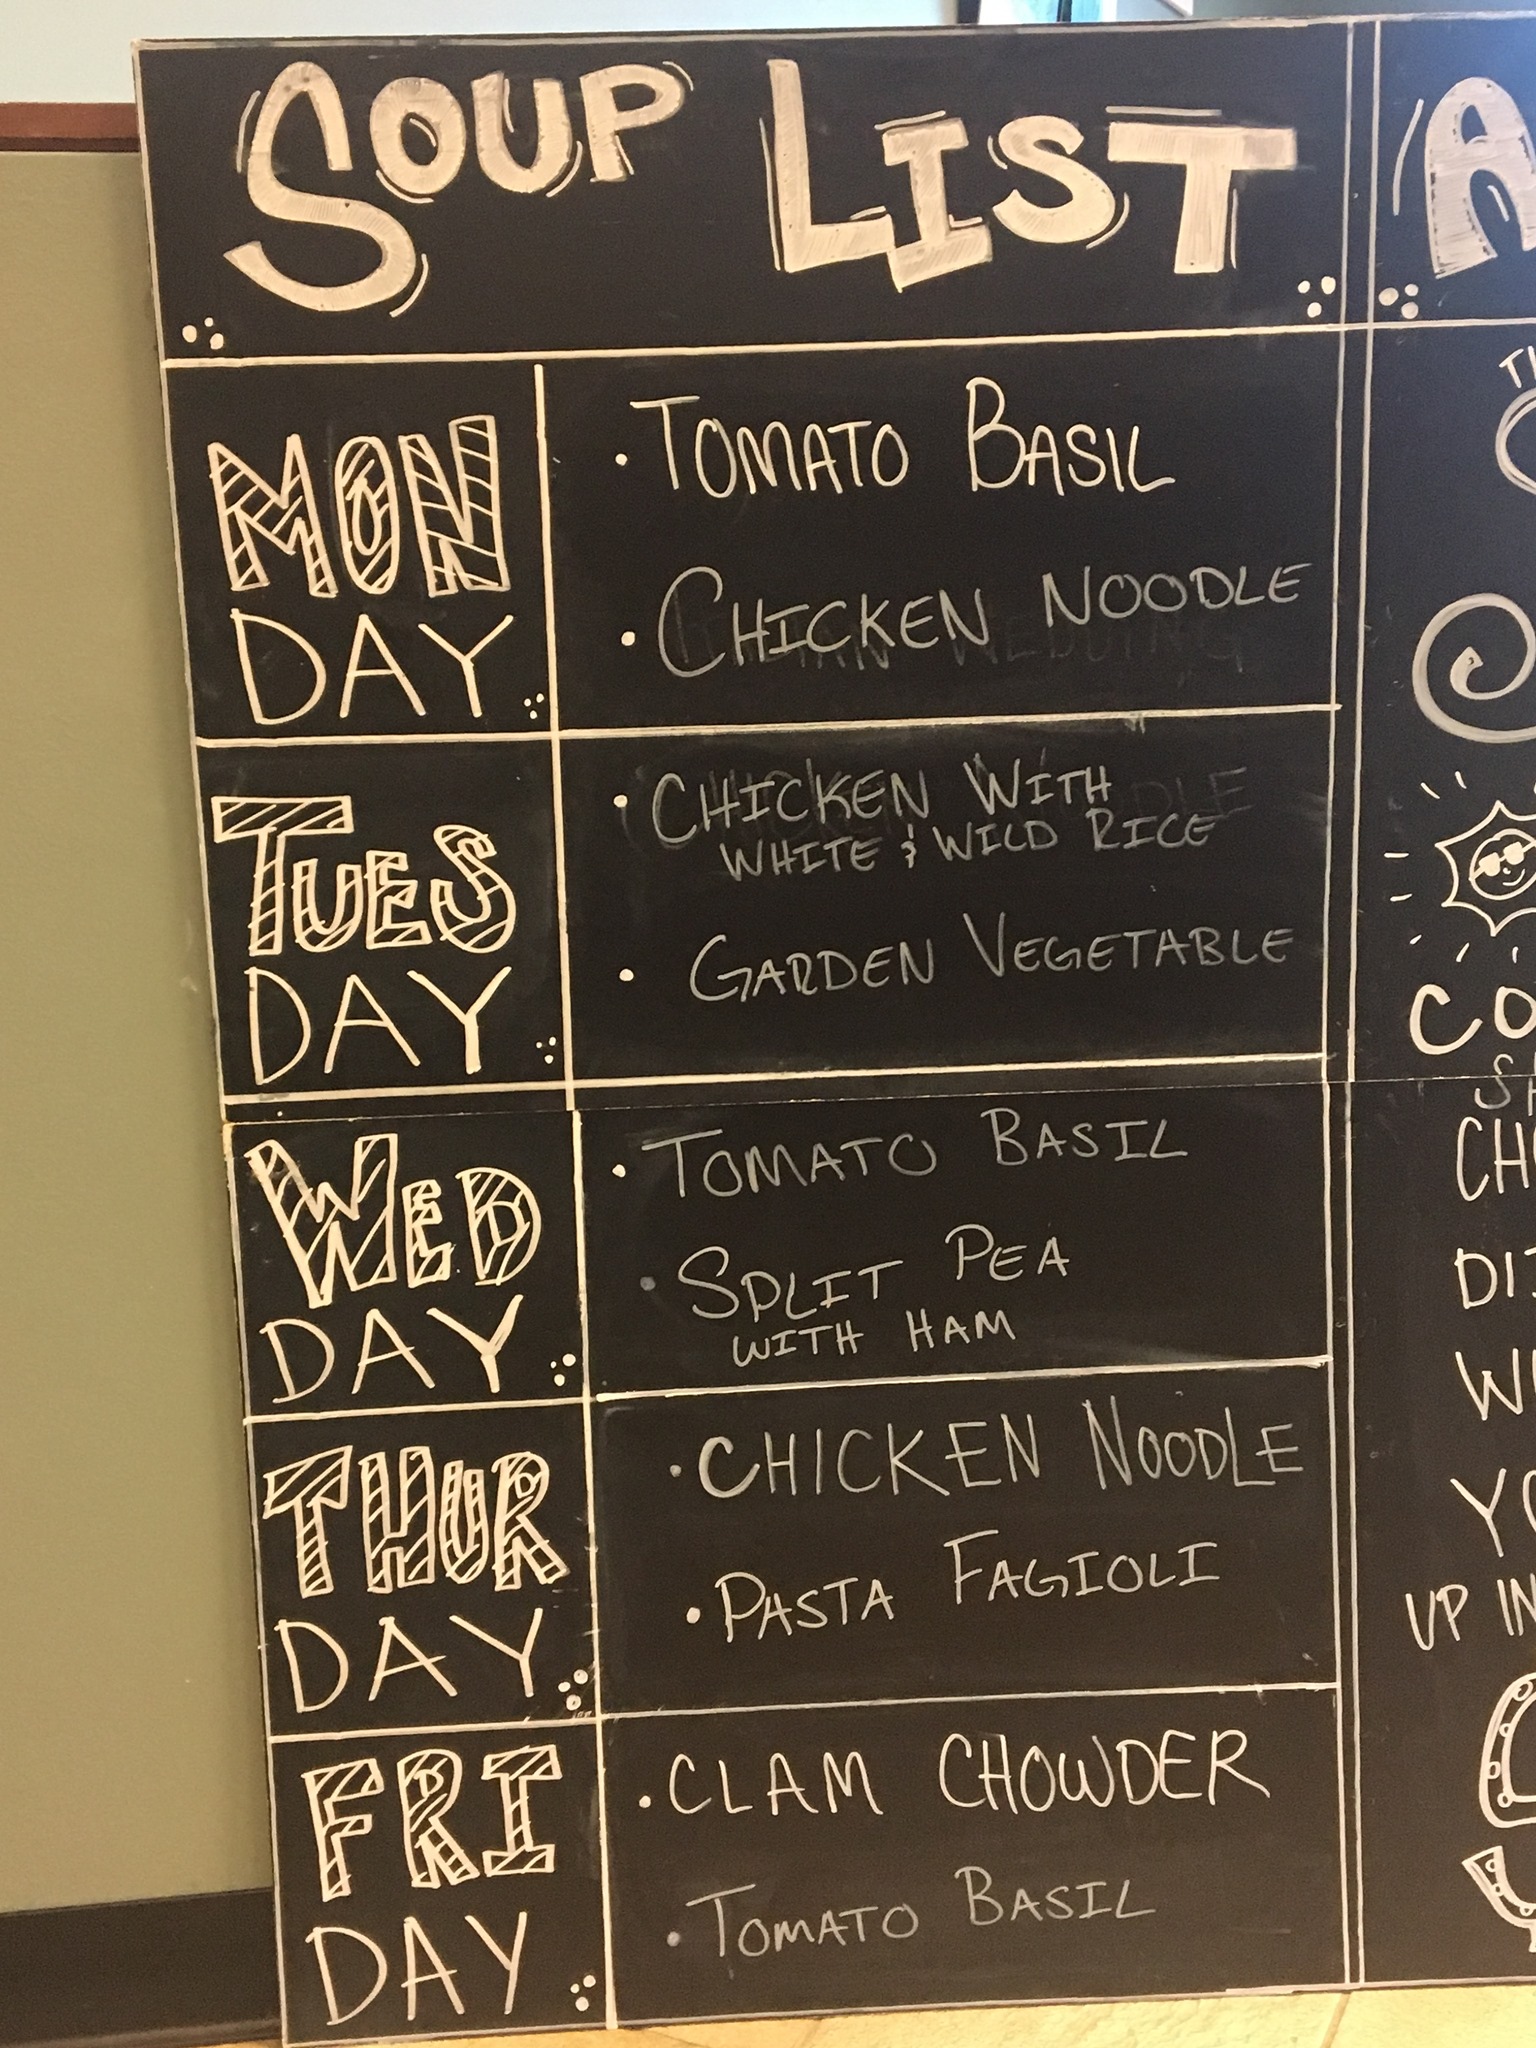 SOUP LIST
MON
DAY
• TOMATO BASIL
• CHICKEN NOODLE
TUES
DAY
• CHICKEN WITH
WHITE & WILD RICE
• GARDEN VEGETABLE
WED
DAY
• TOMATO BASIL
• SPLIT PEA
WITH HAM
THUR
DAY
• CHICKEN NOODLE
• PASTA FAGIOLI
FRI
DAY
• CLAM CHOWDER
• TOMATO BASIL
A
CO
UP IN